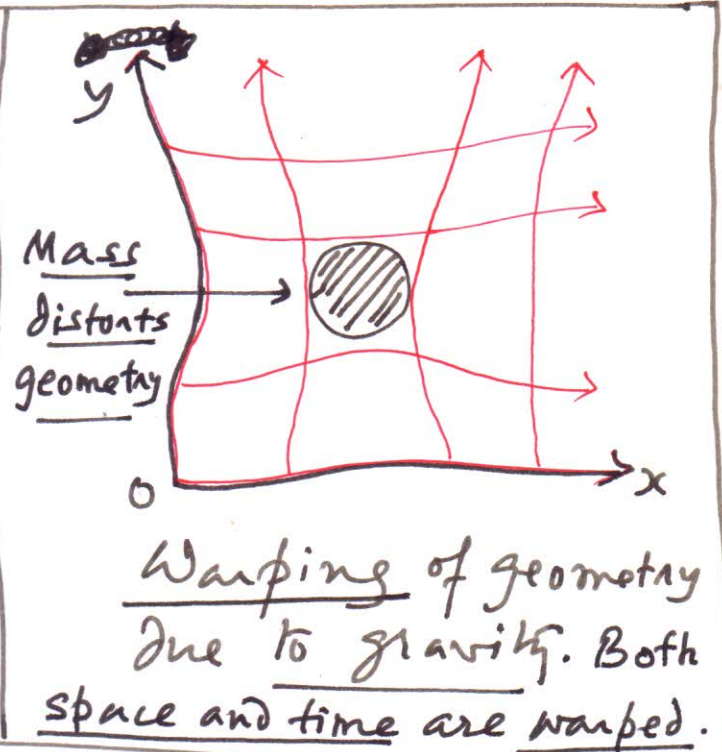 y
Mass
distorts
geometry
O
x
Warping of geometry
due to gravity. Both
space and time are warped.